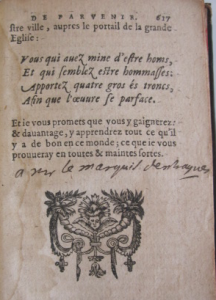 DE PARVENIR. 617
stre ville, aupres le portail de la grande
Eglise:
Vous qui auez mine d'estre homs,
Et qui semblez estre hommasses:
Apportez quatre gros és troncs,
Afin que l'œuure se parface.
Et ie vous promets que vous y gaignerez:
& dauantage, y apprendrez tout ce qu'il
y a de bon en ce monde; ce que ie vous
prouueray en toutes & maintes sortes.
le marquis